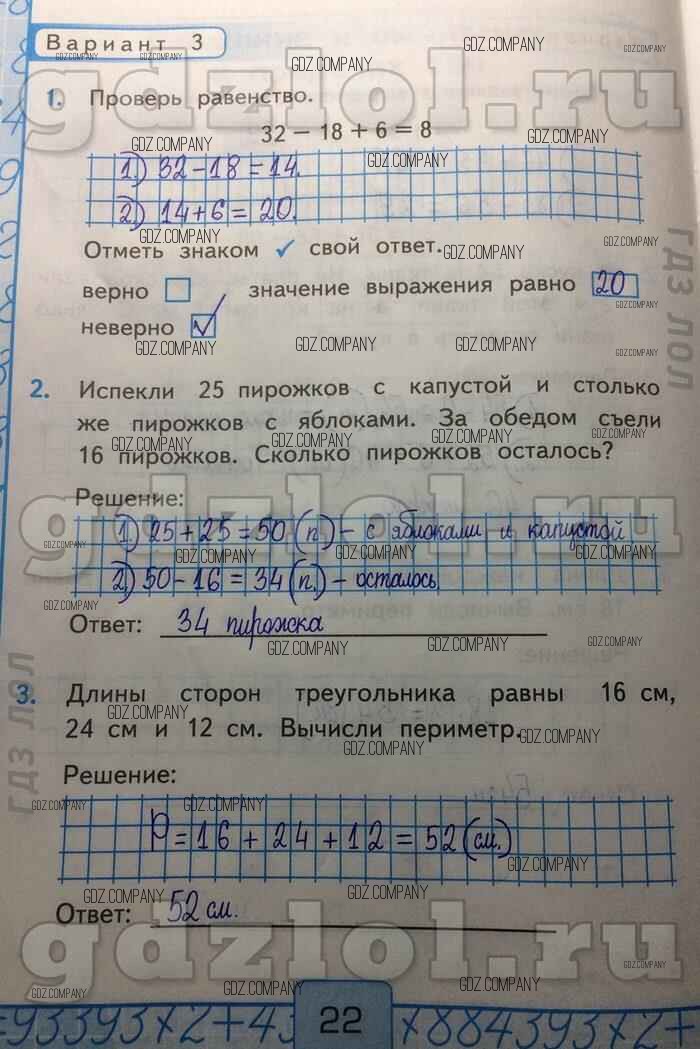 Вариант 3
1. Проверь равенство.
32 − 18 + 6 = 8
1) 32−18=14.
2) 14+6=20.
Отметь знаком ✓ свой ответ.
верно значение выражения равно 20
неверно ✓
2. Испекли 25 пирожков с капустой и столько
же пирожков с яблоками. За обедом съели
16 пирожков. Сколько пирожков осталось?
Решение:
1) 25+25=50 (п.) – с яблоками и капустой
2) 50−16=34 (п.) – осталось
Ответ: 34 пирожка
3. Длины сторон треугольника равны 16 см,
24 см и 12 см. Вычисли периметр.
Решение:
P=16+24+12=52(см.)
Ответ: 52 см.
22
gdzlol.ru
gdzlol.ru
gdzlol.ru
гдз лол
гдз лол
GDZ.COMPANY